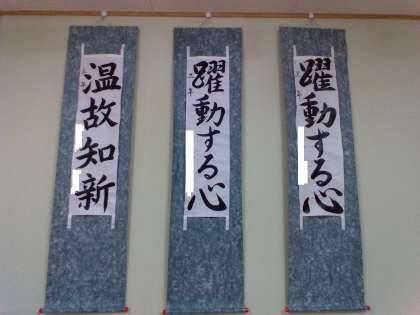 躍動する心
躍動する心
温故知新